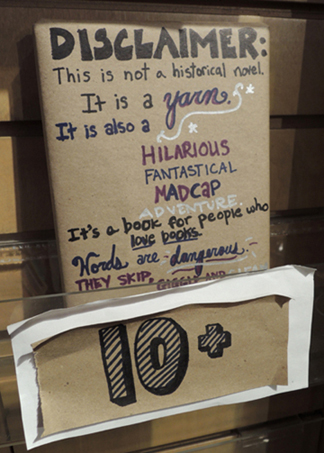 DISCLAIMER:
This is not a historical novel.
It is a yarn.
It is also a
HILARIOUS
FANTASTICAL
MADCAP
ADVENTURE.
It's a book for people who
love books.
Words are dangerous.
THEY SKIP, GIGGLE AND
10+